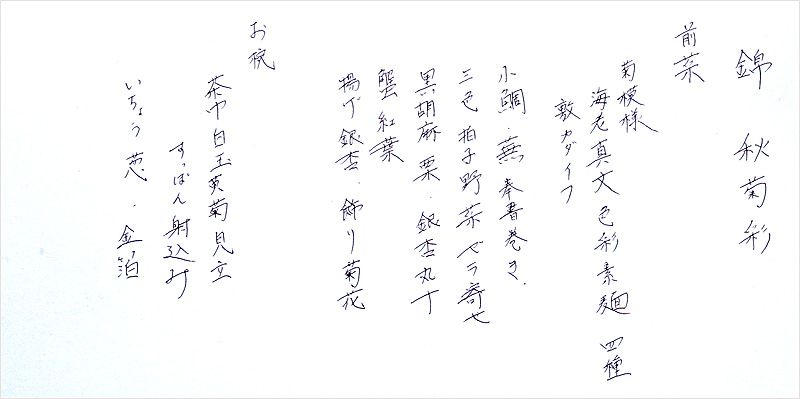 錦 秋菊彩
前菜
菊模様
海老真丈 色彩素麺 四種
敷カダイフ
小鯛・蕪 奉書巻き・
三色 拍子野菜ゼラ寄せ
黒胡麻 栗・銀杏丸十
蟹紅葉
揚げ銀杏・飾り菊花
お椀
茶巾白玉黄菊見立
すっぽん射込み
いちょう葱・金箔